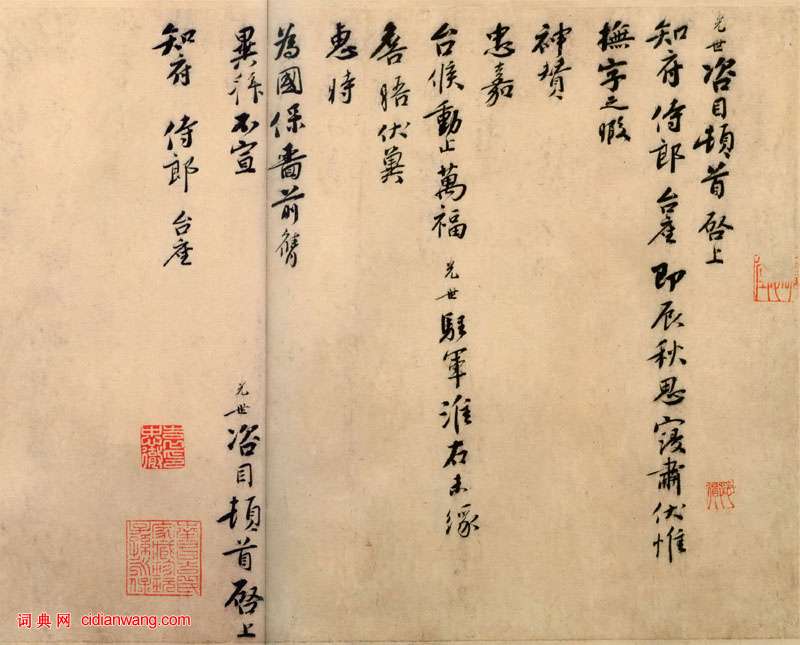 光世咨目頓首啓上
知府侍郎台座即辰秋思寖肅伏惟
撫字之暇
神贊
忠嘉
台候動止萬福光世駐軍淮右未緣
展晤伏冀
惠時
為國保嗇前膺
異拜不宣
光世咨目頓首啓上
知府侍郎台座
袁忠徹印
词典网 cidianwang.com